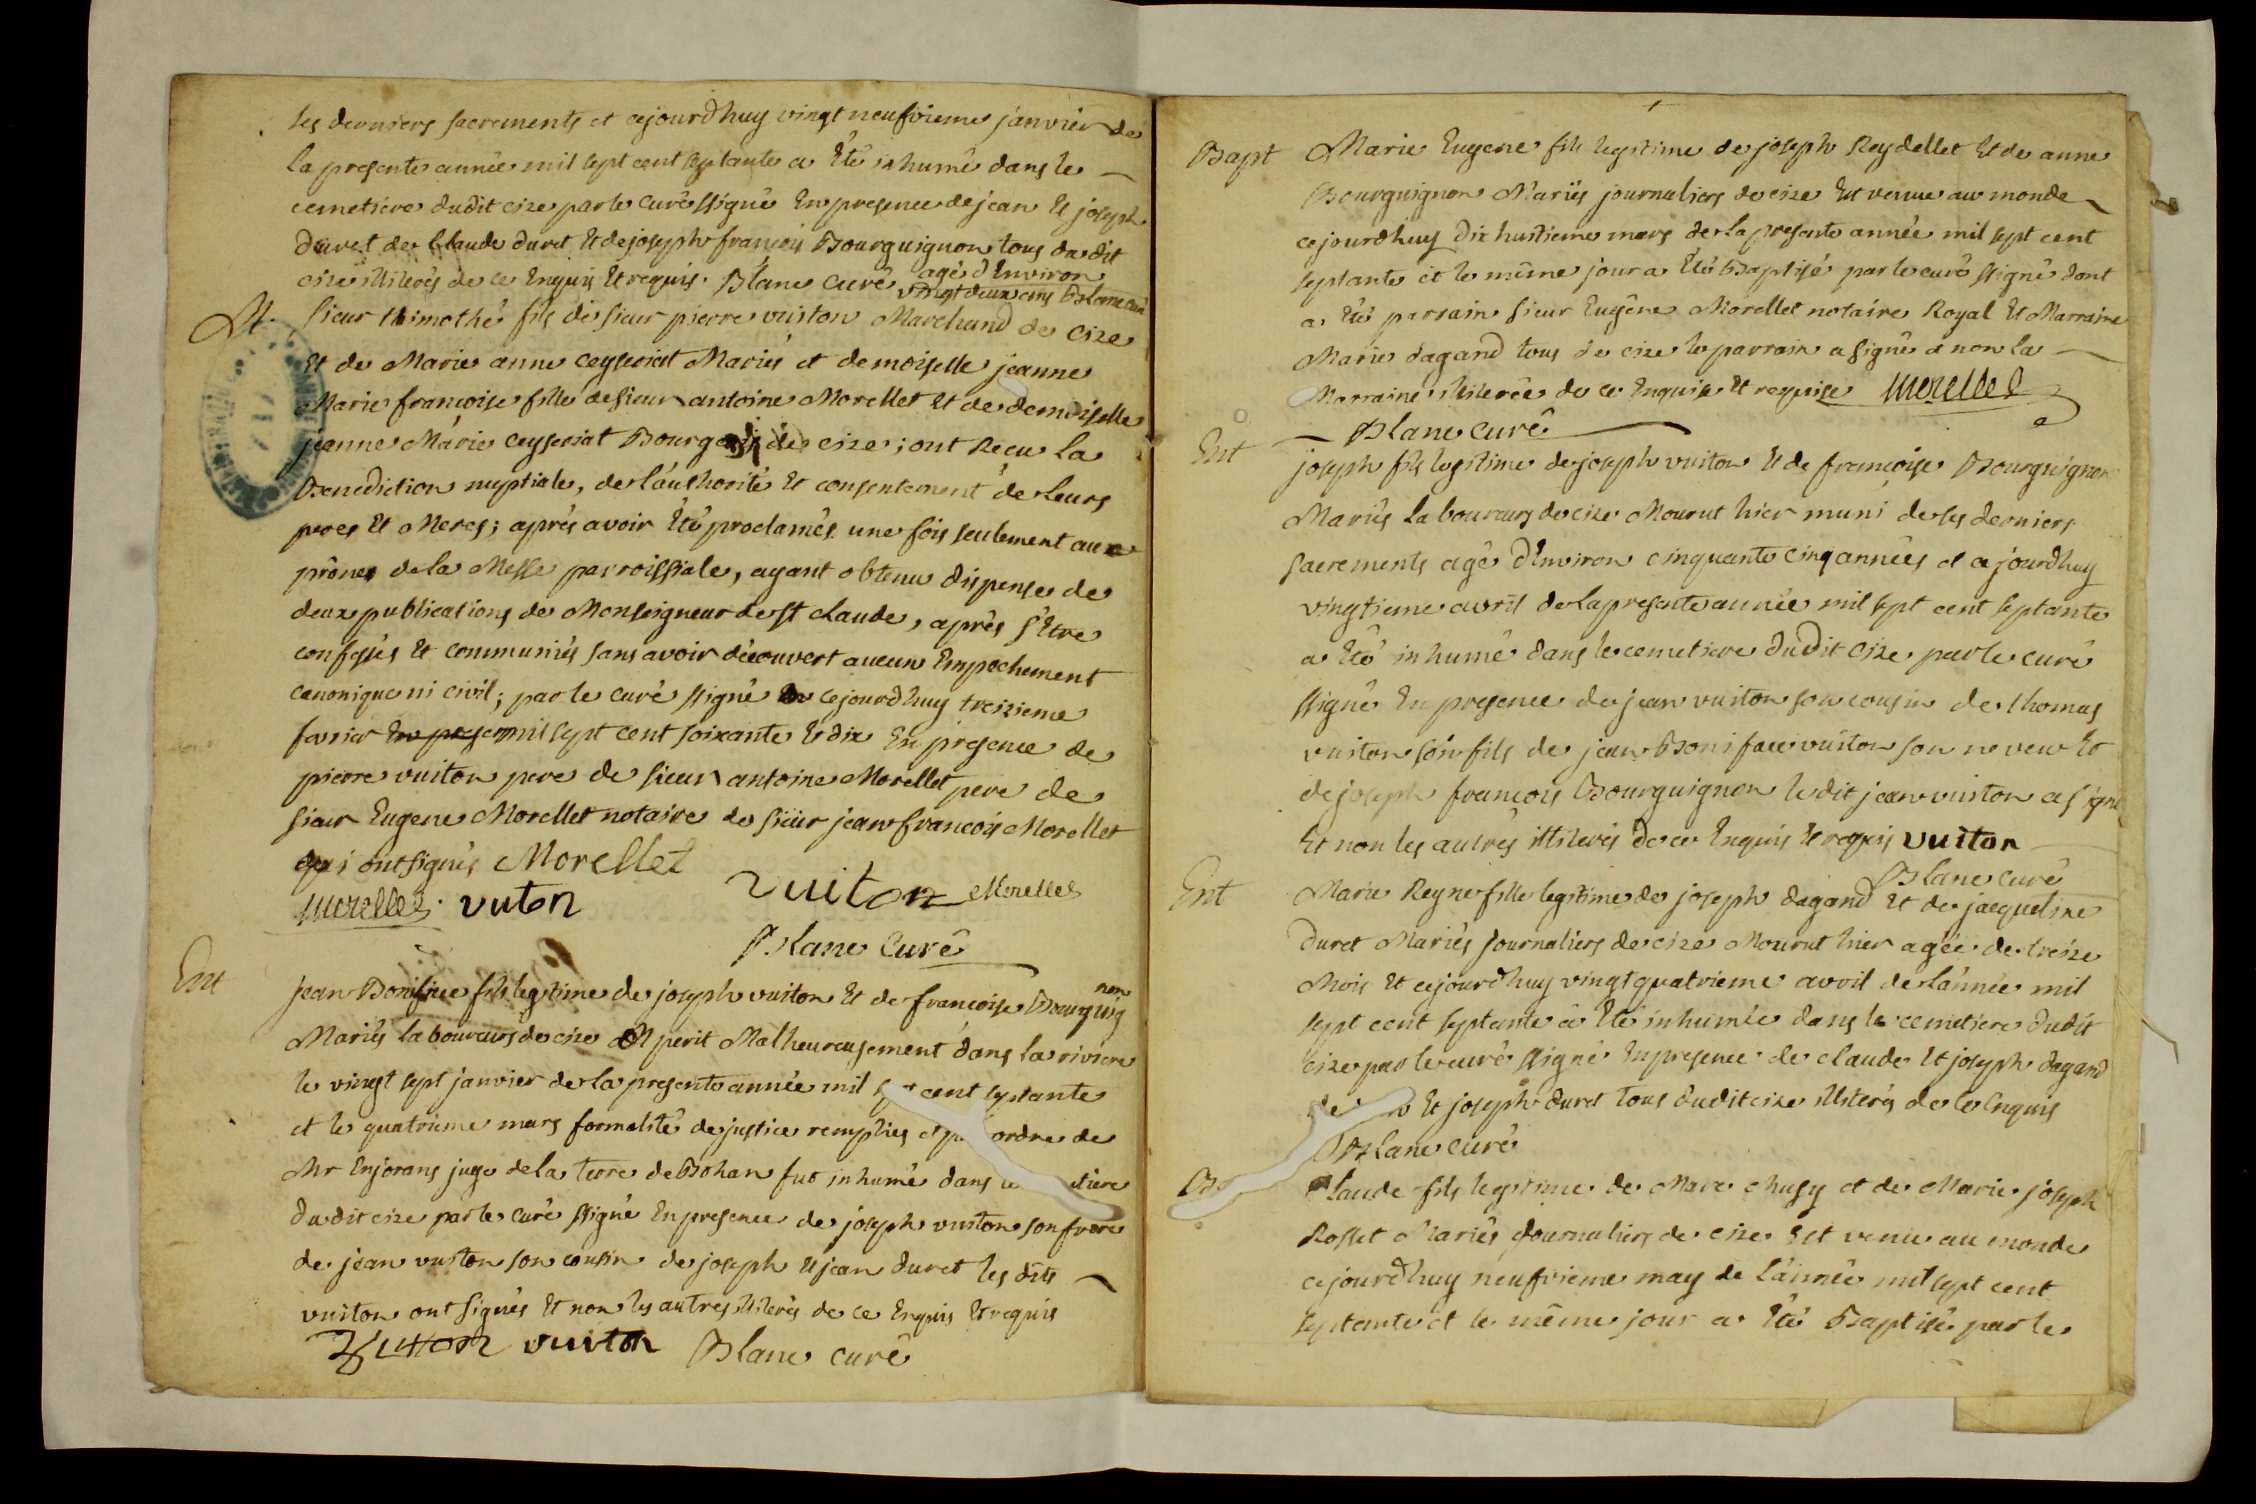 ses derniers sacrements et cejourdhuy vingt neufvieme janvier de
la presente année mil sept cent septante a Eté inhumé dans le
cemetiere dudit cize par le curé ssigné En presence de jean Et joseph
duret de Claude duret Et de joseph francois Bourguignon tous dudit
cize illiterés de ce Enquis Et requis. Blanc curé
agé dEnviron
vingt deux ans Blanc curé
M.
Sieur thimothé fils de sieur pierre vuiton Marchand de cize
Et de Marie anne ceyseriat Mariés et demoiselle jeanne
Marie francoise fille de sieur antoine Morellet Et de demoiselle
jeanne Marie ceyseriat Bourgeois de cize; ont Recu la
Benediction nuptiale, de l'authorité Et consentement de leurs
peres Et Meres; aprés avoir Eté proclamés une fois seulement aux
prônes de la Messe parroissiale, ayant obtenu dispense de
deux publications de Monseigneur de st claude, aprés s'Etre
confessés Et communiés sans avoir découvert aucun Empechement
canonique ni civil; par le curé ssigné cejourdhuy treizieme
fevrier En presen mil sept cent soixante Et dix En presence de
pierre vuiton pere de sieur antoine Morellet pere de
sieur Eugene Morellet notaire de sieur jean francois Morellet
qui ont signés Morellet
Morellet vuton vuiton Morellet
Blanc Curé
Ent
jean Boniface fils legitime de joseph vuiton Et de francoise Bourguignon
Mariés laboureurs de cize périt Malheureusement dans la riviere
le vingt sept janvier de la presente année mil sept cent septante
et le quatrieme mars formalité de justice remplies et par ordre de
Mr Enjorans juge de la terre de Bohan fut inhumé dans le cemetiere
dudit cize par le curé ssigné En presence de joseph vuiton son frere
de jean vuiton son cousin de joseph Et jean duret les dits
vuiton ont signés Et non les autres illiterés de ce Enquis Et requis
vuiton vuiton Blanc curé
Bapt
Marie Eugene fils legitime de joseph Reydellet Et de anne
Bourguignon Mariés journaliers de cize Est venue au monde
cejourdhuy dix huitieme mars de la presente année mil sept cent
septante et le même jour a Eté Baptisé par le curé ssigné dont
a Eté parrain sieur Eugêne Morellet notaire Royal Et Marraine
Marie dagand tous de cize le parrain a signé a non la
Marraine illiterée de ce Enquise Et requise Morellet
Blanc curé
Ent
joseph fils legitime de joseph vuiton Et de francoise Bourguignon
Mariés laboureurs de cize Mourut hier muni de ses derniers
sacrements agé dEnviron cinquante cinq années et cejourdhuy
vingtieme avril de la presente année mil sept cent septante
a Eté inhumé dans le cemetiere dudit Cize par le curé
ssigné En presence de jean vuiton son cousin de thomas
vuiton son fils de jean Boniface vuiton son neveu Et
de joseph francois Bourguignon ledit jean vuiton a signé
Et non les autres illiterés de ce Enquis Et requis vuiton
Blanc curé
Ent
Marie Reyne fille legitime de joseph dagand Et de jacqueline
duret Mariés journaliers de cize Mourut hier agée de treize
Mois Et cejourdhuy vingt quatrieme avril de l'année mil
sept cent septante a Eté inhumée dans le cemetiere dudit
cize par le curé ssigné En presence de claude Et joseph dagand
de Et joseph duret tous dudit cize illiterés de ce Enquis
Blanc curé
Claude fils legitime de Marc chusy et de Marie joseph
Rosset Mariés journaliers de cize Est venu au monde
cejourdhuy neufvieme may de l'année mil sept cent
septante et le même jour a Eté Baptisé par le